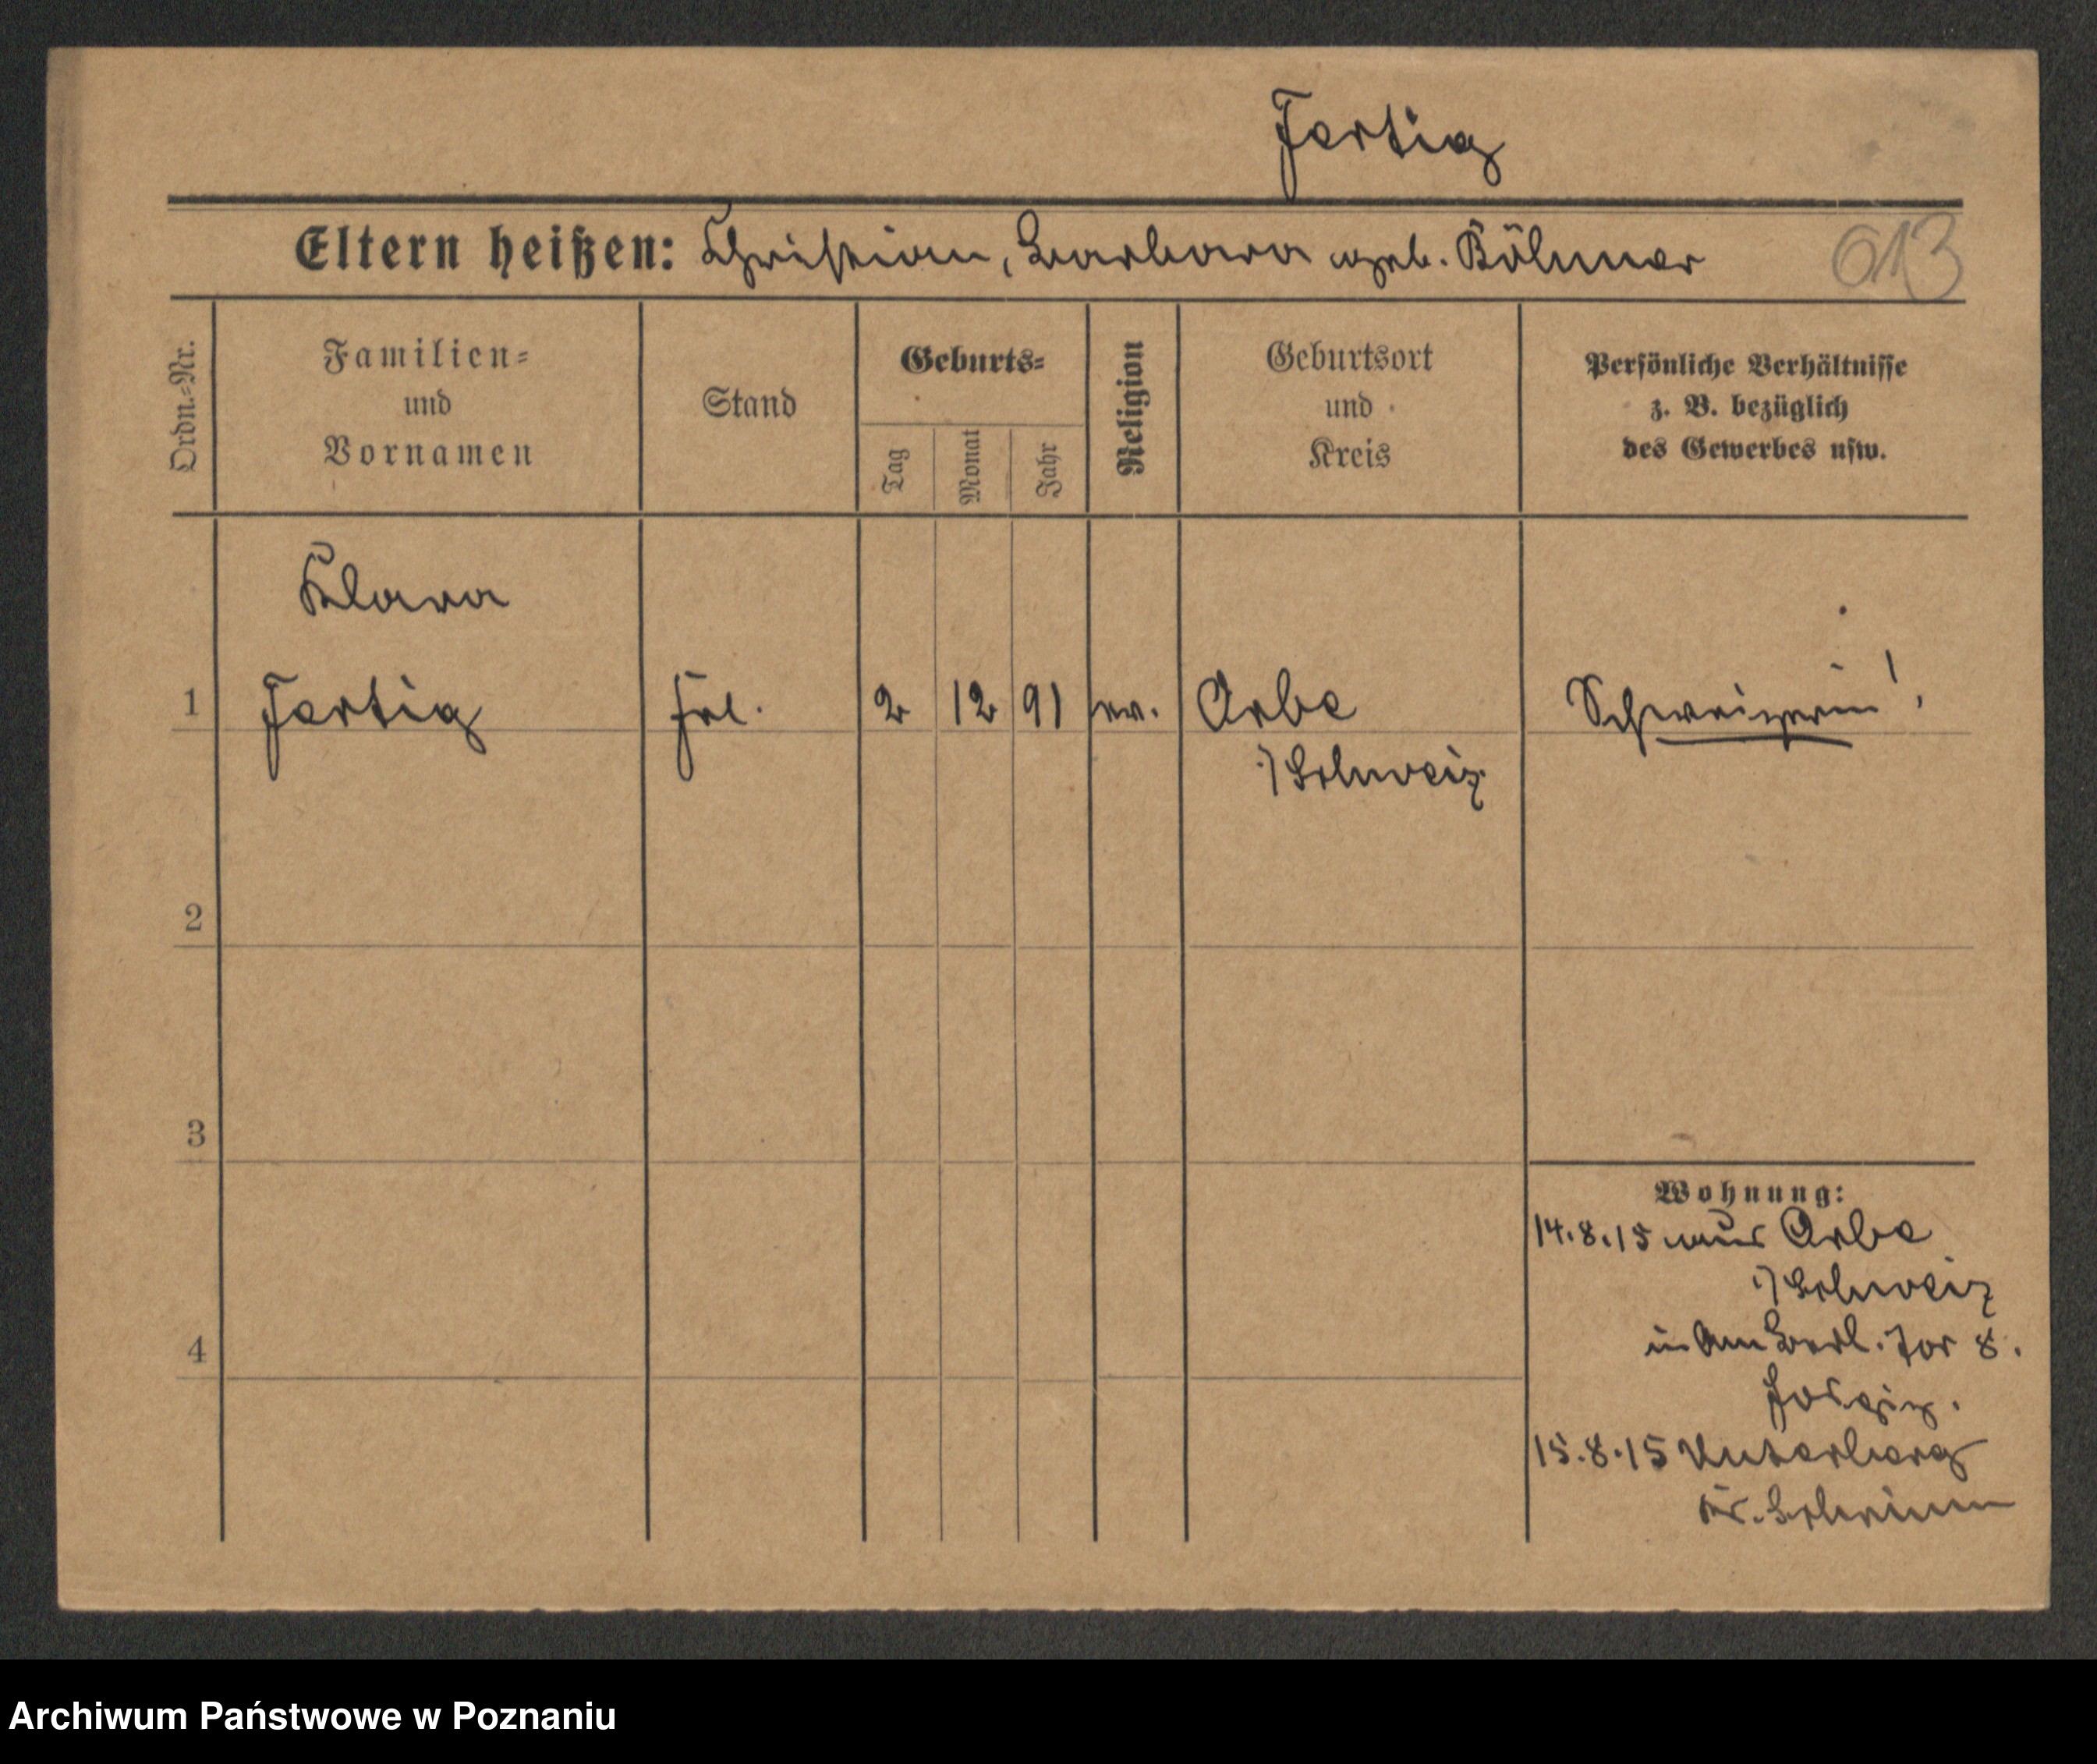 Fertig
Eltern heißen: Christian, Barbara geb. Böhmer
613
Ordn.-Nr.
Familien-
und
Vornamen
Stand
Geburts-
Tag
Monat
Jahr
Religion
Geburtsort
und
Kreis
Persönliche Verhältnisse
z. B. bezüglich
des Gewerbes usw.
Klara
1 Fertig Frl. 2 12 91 ev. Orbe Schweizerin!
i/Schweiz
2
3
Wohnung:
14.8.15 aus Orbe
i/Schweiz
in Am Berl. Tor 8.
4
15.8.15 Unterberg
Kr. Schrimm
Archiwum Państwowe w Poznaniu